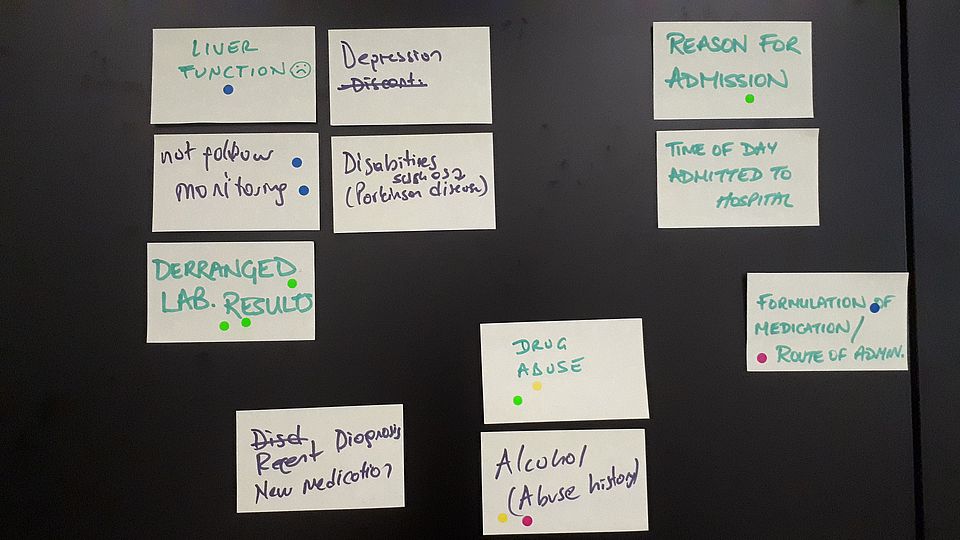 LIVER
FUNCTION ☹
Depression
REASON FOR
ADMISSION
not follow
monitoring
Disabilities
such as
(Parkinson disease)
TIME OF DAY
ADMITTED TO
HOSPITAL
DERRANGED
LAB. RESULTS
FORMULATION OF
MEDICATION/
ROUTE OF ADMIN.
DRUG
ABUSE
Recent Diagnosis
New Medication
Alcohol
(Abuse history)